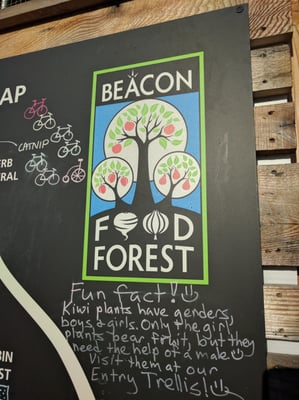 AP
CATNIP
RB
RAL
BEACON
FOOD
FOREST
Fun fact!
Kiwi plants have genders,
boys & girls. Only the girl
plants bear fruit, but they
need the help of a male
Visit them at our
Entry Trellis!
BIN
ST